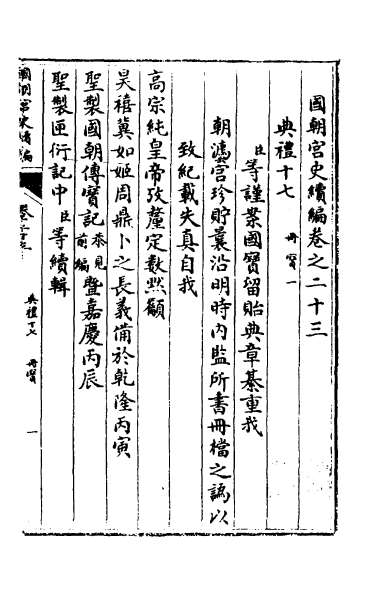 國朝宮史續編卷之二十三
典禮十七 冊寶一
臣等謹案國寶留貽典章綦重我
朝瀋宮珍貯曩沿明時內監所書冊檔之譌以
致紀載失真自我
高宗純皇帝攷釐定數默籲
昊禧冀如姬周鼎卜之長義備於乾隆丙寅
聖製國朝傳寶記恭見前編暨嘉慶丙辰
聖製匣衍記中臣等續輯
國朝宮史續編 卷之二十三 典禮十七 冊寶 一